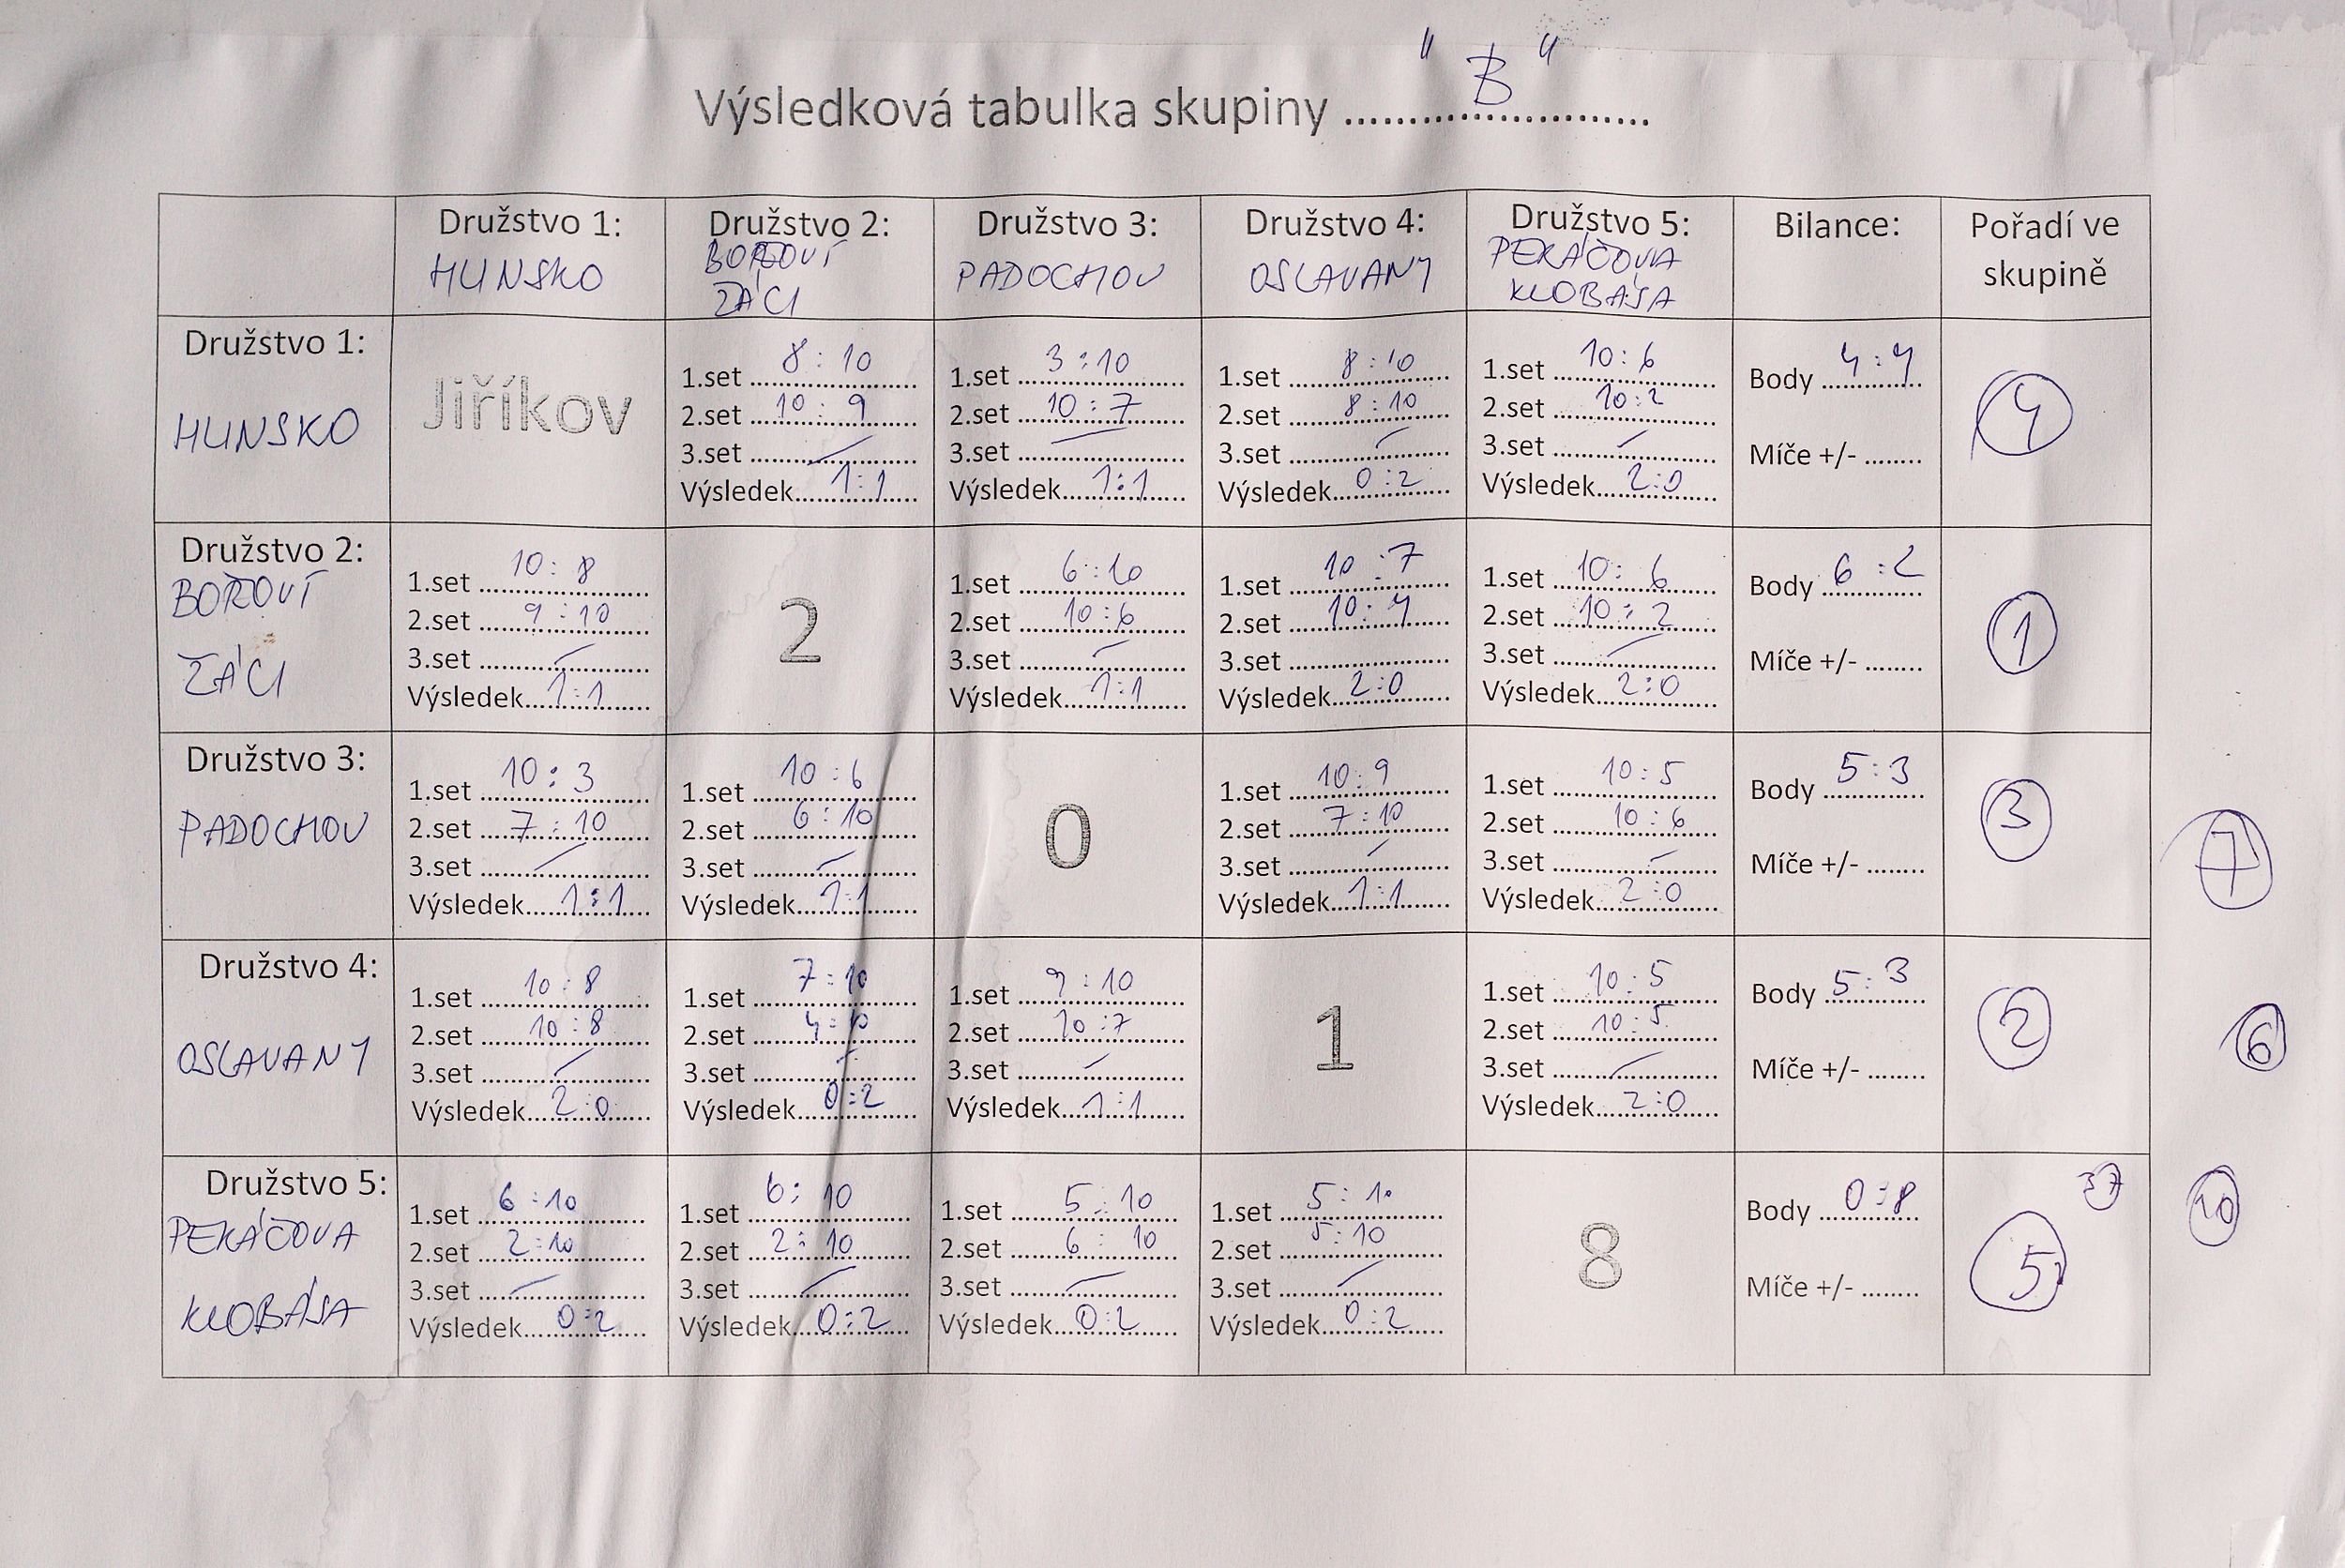 "B"
Výsledková tabulka skupiny ........................
Družstvo 1:
HUNSKO
Družstvo 2:
BOŘOVÍ
ŽÁCI
Družstvo 3:
PADOCHOV
Družstvo 4:
OSLAVANY
Družstvo 5:
PEKÁČOVA
KLOBÁSA
Bilance:
Pořadí ve
skupině
Družstvo 1:
HUNSKO
Jiříkov
1.set 8:10
2.set 10:9
3.set –
Výsledek 1:1
1.set 3:10
2.set 10:7
3.set –
Výsledek 1:1
1.set 8:10
2.set 8:10
3.set –
Výsledek 0:2
1.set 10:6
2.set 10:2
3.set –
Výsledek 2:0
Body 4:4
Míče +/- ........
4
Družstvo 2:
BOŘOVÍ
ŽÁCI
1.set 10:8
2.set 9:10
3.set –
Výsledek 1:1
2
1.set 6:10
2.set 10:6
3.set –
Výsledek 1:1
1.set 10:7
2.set 10:4
3.set ........
Výsledek 2:0
1.set 10:6
2.set 10:2
3.set –
Výsledek 2:0
Body 6:2
Míče +/- ........
1
Družstvo 3:
PADOCHOV
1.set 10:3
2.set 7:10
3.set –
Výsledek 1:1
1.set 10:6
2.set 6:10
3.set –
Výsledek 1:1
0
1.set 10:9
2.set 7:10
3.set –
Výsledek 1:1
1.set 10:5
2.set 10:6
3.set –
Výsledek 2:0
Body 5:3
Míče +/- ........
3
7
Družstvo 4:
OSLAVANY
1.set 10:8
2.set 10:8
3.set –
Výsledek 2:0
1.set 7:10
2.set 4:10
3.set –
Výsledek 0:2
1.set 9:10
2.set 10:7
3.set –
Výsledek 1:1
1
1.set 10:5
2.set 10:5
3.set –
Výsledek 2:0
Body 5:3
Míče +/- ........
2
6
Družstvo 5:
PEKÁČOVA
KLOBÁSA
1.set 6:10
2.set 2:10
3.set –
Výsledek 0:2
1.set 6:10
2.set 2:10
3.set –
Výsledek 0:2
1.set 5:10
2.set 6:10
3.set –
Výsledek 0:2
1.set 5:10
2.set 5:10
3.set –
Výsledek 0:2
8
Body 0:8
Míče +/- ........
37
5
10